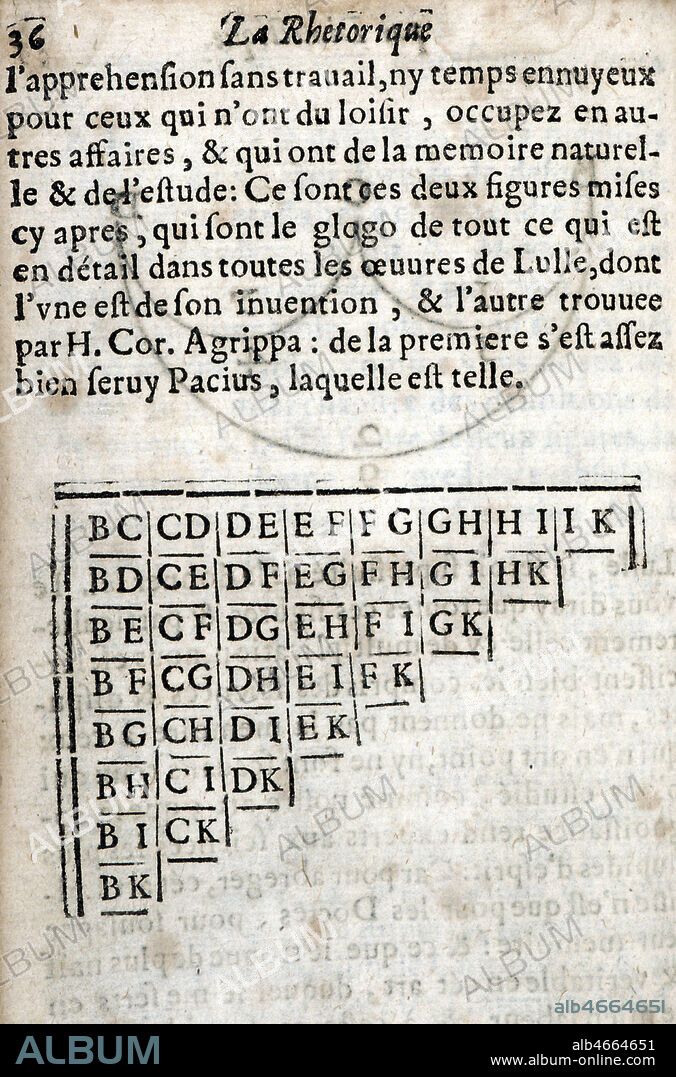 36 La Rhetorique
l'apprehenſion ſans trauail, ny temps ennuyeux
pour ceux qui n'ont du loiſir , occupez en au-
tres affaires , & qui ont de la memoire naturel-
le & de l'eſtude: Ce ſont ces deux figures miſes
cy apres , qui ſont le glogo de tout ce qui eſt
en détail dans toutes les œuures de Lulle, dont
l'vne eſt de ſon inuention , & l'autre trouuee
par H. Cor. Agrippa : de la premiere s'eſt aſſez
bien ſeruy Pacius , laquelle eſt telle.
BC CD DE EF FG GH HI IK
BD CE DF EG FH GI HK
BE CF DG EH FI GK
BF CG DH EI FK
BG CH DI EK
BH CI DK
BI CK
BK
alb4664651
ALBUM
alb4664651
www.album-online.com